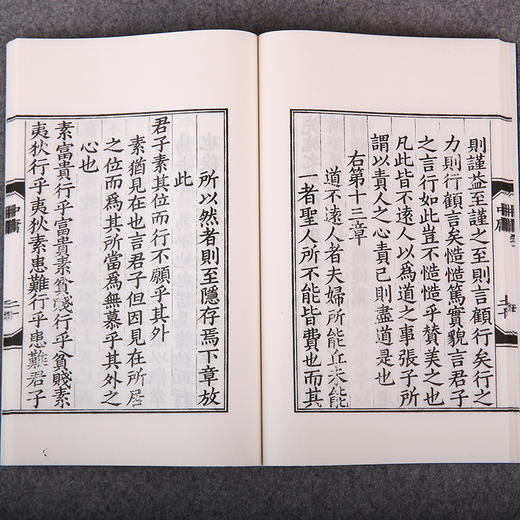 則謹益至謹之至則言顧行矣行之
力則行顧言矣慥慥篤實貌言君子
之言行如此豈不慥慥乎贊美之也
凡此皆不遠人以為道之事張子所
謂以責人之心責己則盡道是也
右第十三章
道不遠人者夫婦所能丘未能
一者聖人所不能皆費也而其
中庸
所以然者則至隱存焉下章放
此
君子素其位而行不願乎其外
素猶見在也言君子但因見在所居
之位而為其所當為無慕乎其外之
心也
素富貴行乎富貴素貧賤行乎貧賤素
夷狄行乎夷狄素患難行乎患難君子
中庸